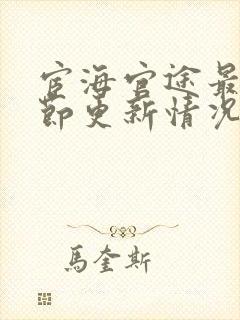 宦海官途最
節更新情況
馬奎斯